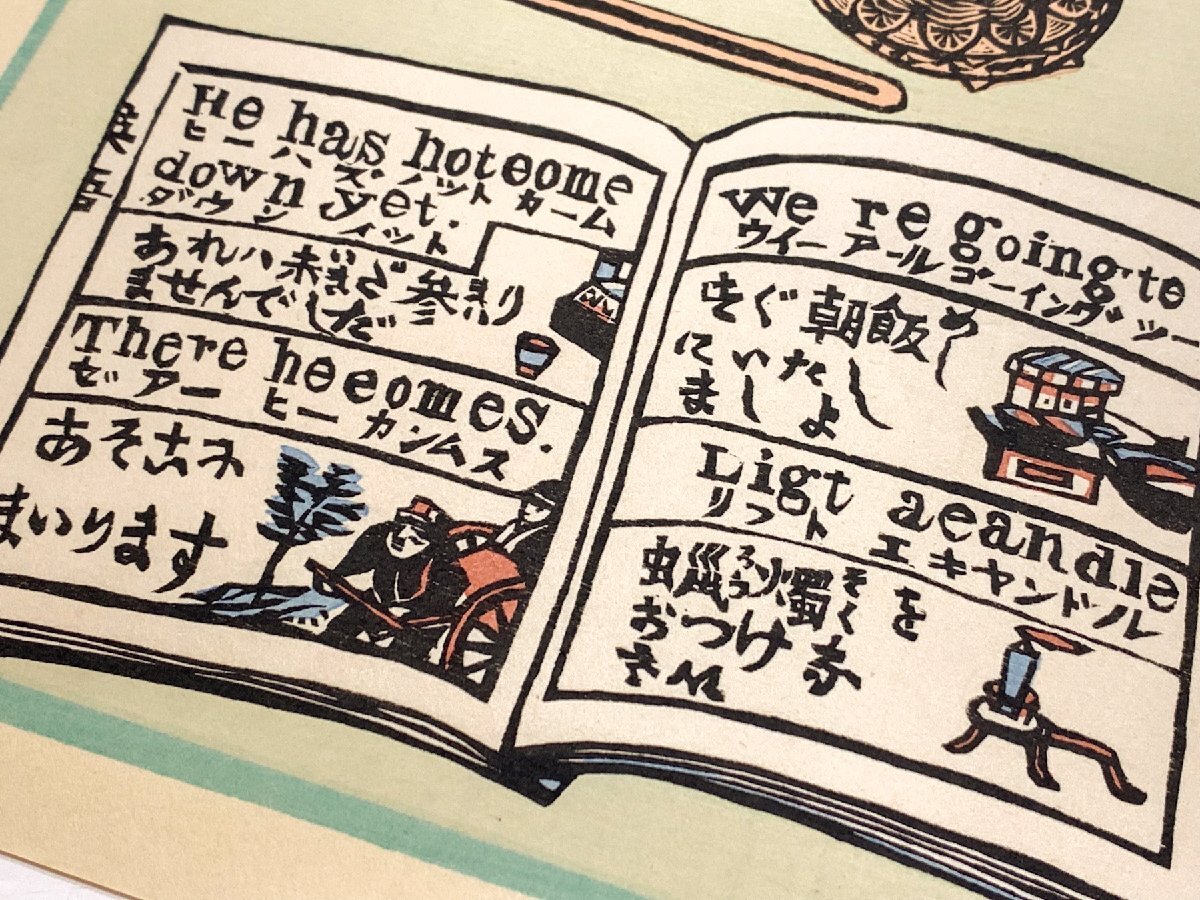 He has hot come
ヒー ハズ ノット カーム
down yet.
ダウン イット
あれハ未まだ参まり
ませんでしだ
There he comes.
ゼアー ヒー カンムス
あそこへ
まいります
We re going to
ウイー アール ゴーイング ツー
すぐ朝飯めし
にいたし
ましよ
Ligt a eandle
リフト エ キヤンドル
蝋ろう燭そくを
おつけな
さい